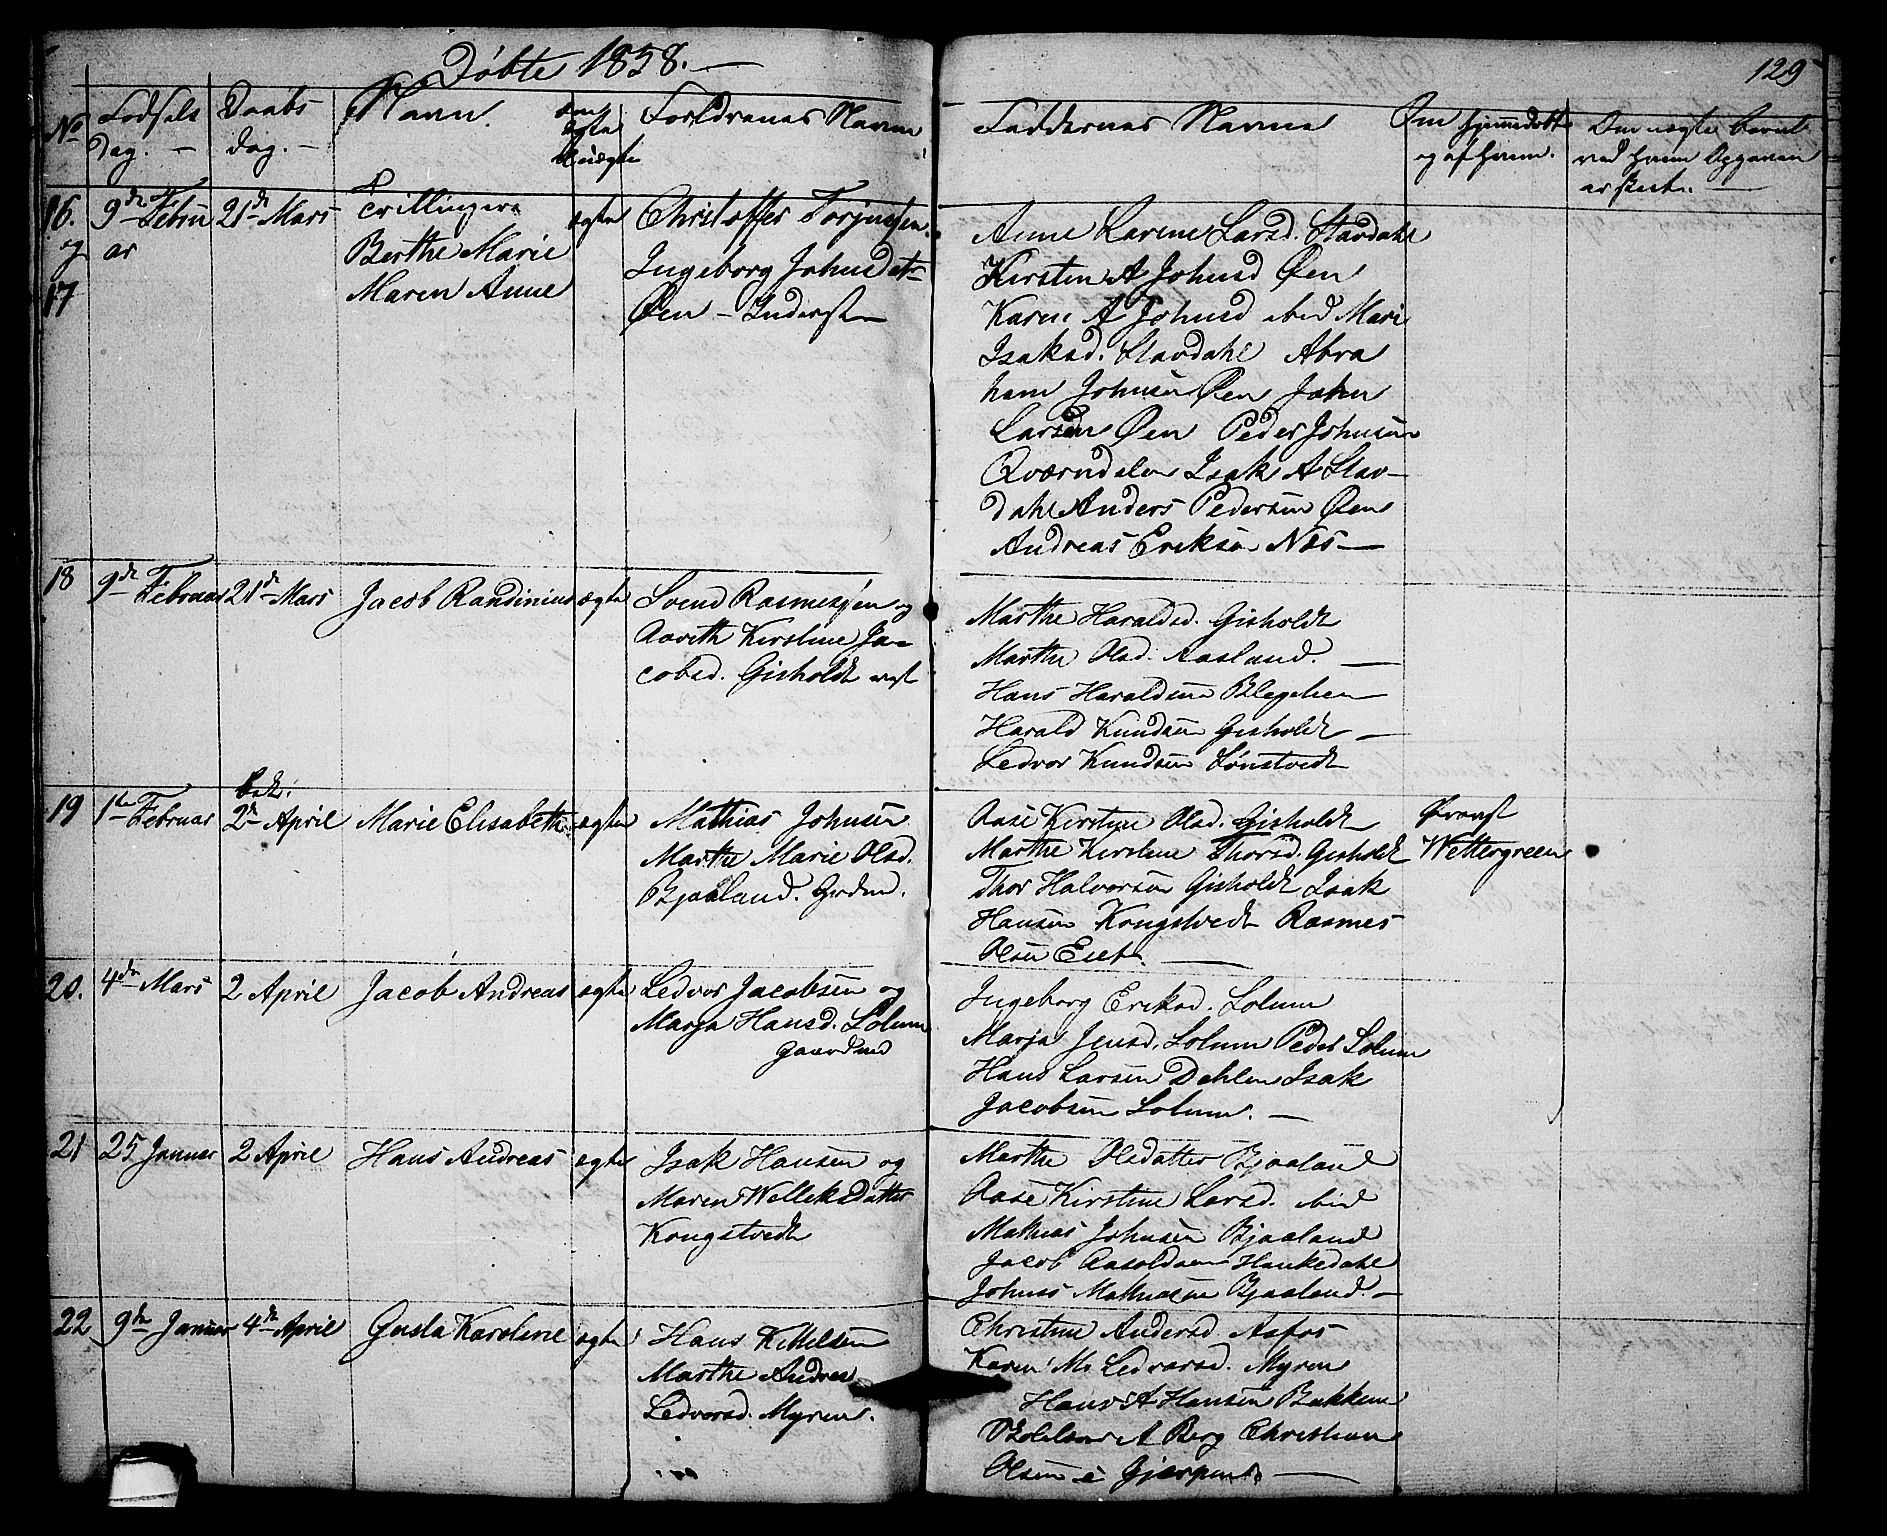 Døbte 1858. —
129
No
Fødsels
dag. —
Daabs
dag. —
Navn.
om
ægte
el uægte
Forældrenes Navne
Faddernes Navne
Om hjemmedøbt
og af hvem.
Om uægte
ved hvem Opgaven
er skeet. —
16.
og
17
9de Febru
ar
21de Mars
Tvillinger
Berthe Marie
Maren Anne
ægte
Christoffer Torjussen
Ingeborg Johnsdatr
Øen – Inderst
Anne Karine Larsd. Stavdahl
Kirsten A Johnsd Øen
Karen A Johnsd ibid Mari
Isaksd. Stavdahl Abra
ham Johnsen Øen John
Larsen Øen Peder Johnsen
Qværndalen Isak A Stav–
dahl Anders Pedersen Øen
Andreas Eriksen Næs —
18
9de Februar
21de Mars
Jacob Randinius
ægte
Svend Rasmussen og
Aareth Kirstine Ja–
cobsd. Gisholdt
Marthe Haraldsd. Gisholdt
Marthe Olsd. Aasland. —
Hans Haraldsen
Harald Knudsen Gisholdt —
Ledvor Knudsen
19
1te Februar
bek.
2de April
Marie Elisabeth
ægte
Mathias Johnsen
Marthe Marie Olsd.
Bjaaland. Grdm.
Aase Kirstine Olsd. Gisholdt
Marthe Kirstine Thorsd. Gisholdt
Thor Halvorsen Gisholdt Isak
Hansen Kongstvedt Rasmus
Olsen —
Provst
Wettergreen
20.
4de Mars
2 April
Jacob Andreas
ægte
Ledvor Jacobsen og
Marja Hansd. Solum
Gaardmd
Ingeborg Eriksd. Solum
Marja Jensd. Solum Peder Solum
Hans Larsen Dehlen Isak
Jacobsen Solum. —
21
25 Januar
2 April
Hans Andreas
ægte
Isak Hansen og
Maren Welleksdatter
Kongstvedt
Marthe Olsdatter Bjaaland
Aase Kirstine Larsd. ibid
Mathias Johnsen Bjaaland
Jacob Aasoldsen Haukedahl
Johnis Mathiasen Bjaaland. —
22
9de Januar
4de April
Gusta Karoline
ægte
Hans Kittelsen
Marthe Andrea
Ledvorsd. Myren.
Christine Andersd. Aafos
Karen M. Ledvorsd. Myren
Hans A Hansen Bakken
A Berg Christian
Olsen i Gjerpen —